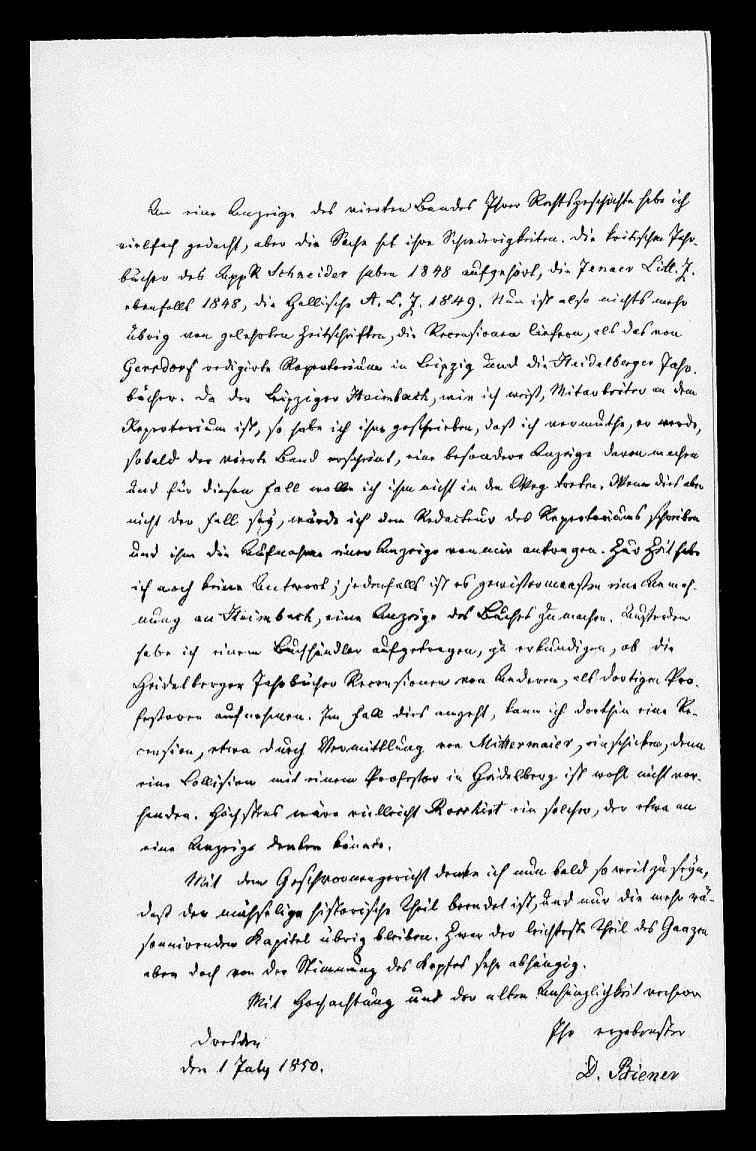 An eine Anzeige des vierten Bandes Ihrer Rechtsgeschichte habe ich
vielfach gedacht, aber die Sache hat ihre Schwierigkeiten. Die kritischen Jahr-
bücher des AppR Schneider haben 1848 aufgehört, die Jenaer Litt. Z.
ebenfalls 1848, die Hallische A. L. Z. 1849. Nun ist also nichts mehr
übrig von gelehrten Zeitschriften, die Recensionen liefern, als das von
Gersdorf redigirte Repertorium in Leipzig und die Heidelberger Jahr-
bücher. Da der Leipziger Heimbach, wie ich weiß, Mitarbeiter an dem
Repertorium ist, so habe ich ihm geschrieben, daß ich vermuthe, er werde,
sobald der vierte Band erscheint, eine besondere Anzeige davon machen
und für diesen Fall wolle ich ihm nicht in den Weg treten. Wenn dies aber
nicht der Fall sey, würde ich dem Redacteur des Repertoriums schreiben
und ihm die Aufnahme einer Anzeige von mir antragen. Zur Zeit habe
ich noch keine Antwort; jedenfalls ist es gewissermaaßen eine Anmah-
nung an Heimbach, eine Anzeige des Buches zu machen. Außerdem
habe ich einem Buchhändler aufgetragen, zu erkundigen, ob die
Heidelberger Jahrbücher Recensionen von Anderen, als dortigen Pro-
fessoren aufnehmen. Im Fall dies angeht, kann ich dorthin eine Re-
cension, etwa durch Vermittlung von Mittermaier, einschicken, denn
eine Collision mit einem Professor in Heidelberg ist wohl nicht vor-
handen. Höchstens wäre vielleicht Rosshirt ein solcher, der etwa an
eine Anzeige denken könnte.
Mit dem Geschwornengericht denke ich nun bald so weit zu seyn,
daß der mühselige historische Theil beendet ist, und nur die mehr rä-
sonnirenden Kapitel übrig bleiben. Zwar der leichteste Theil des Ganzen
aber doch von der Stimmung des Kopfes sehr abhängig.
Mit Hochachtung und der alten Anhänglichkeit
Ihr ergebenster
Dresden
den 1 July 1850.
D. Biener